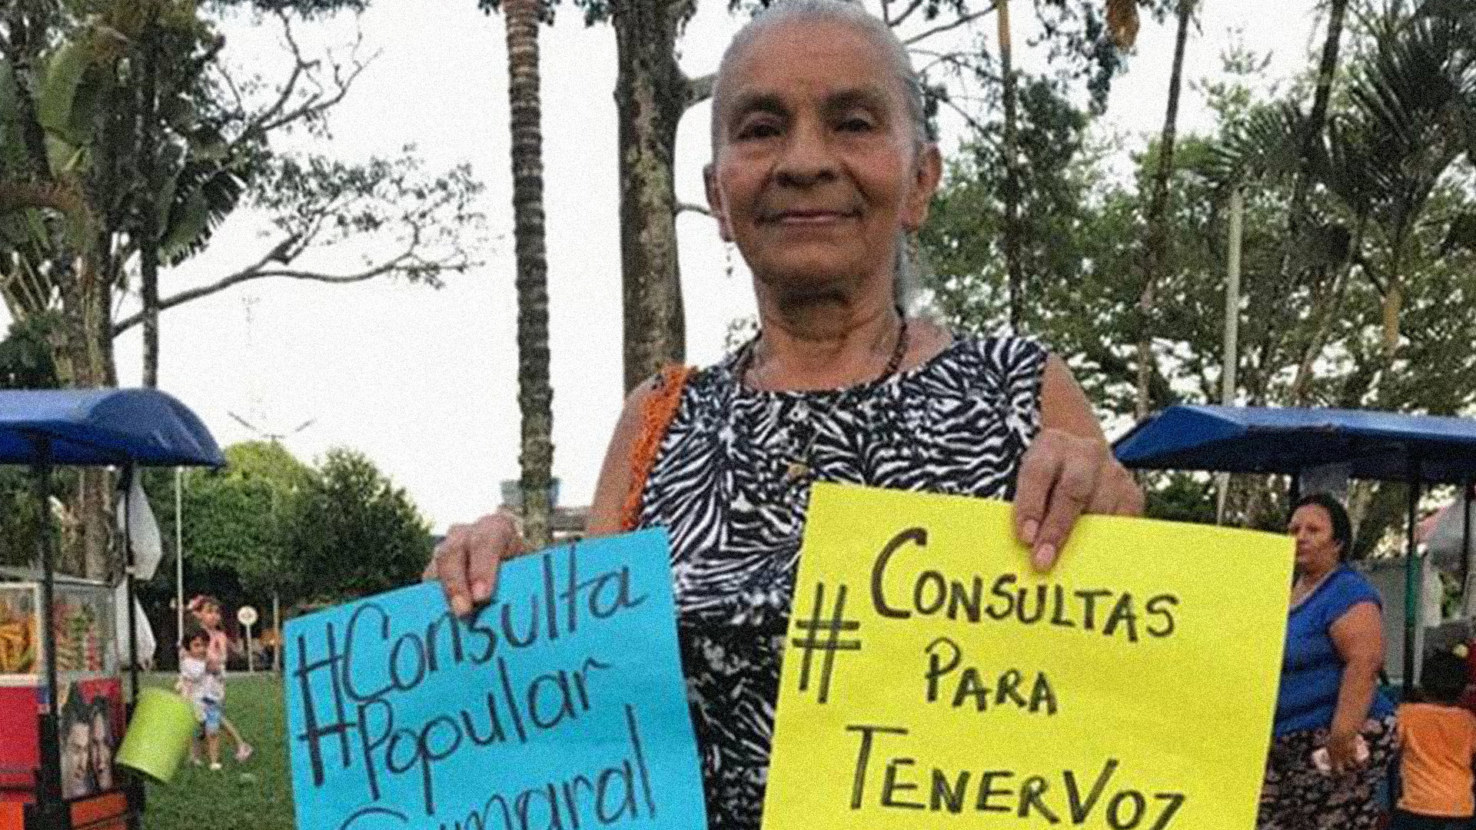 #Consulta
#Popular
Cumaral
#CONSULTAS
PARA
TENERVOZ